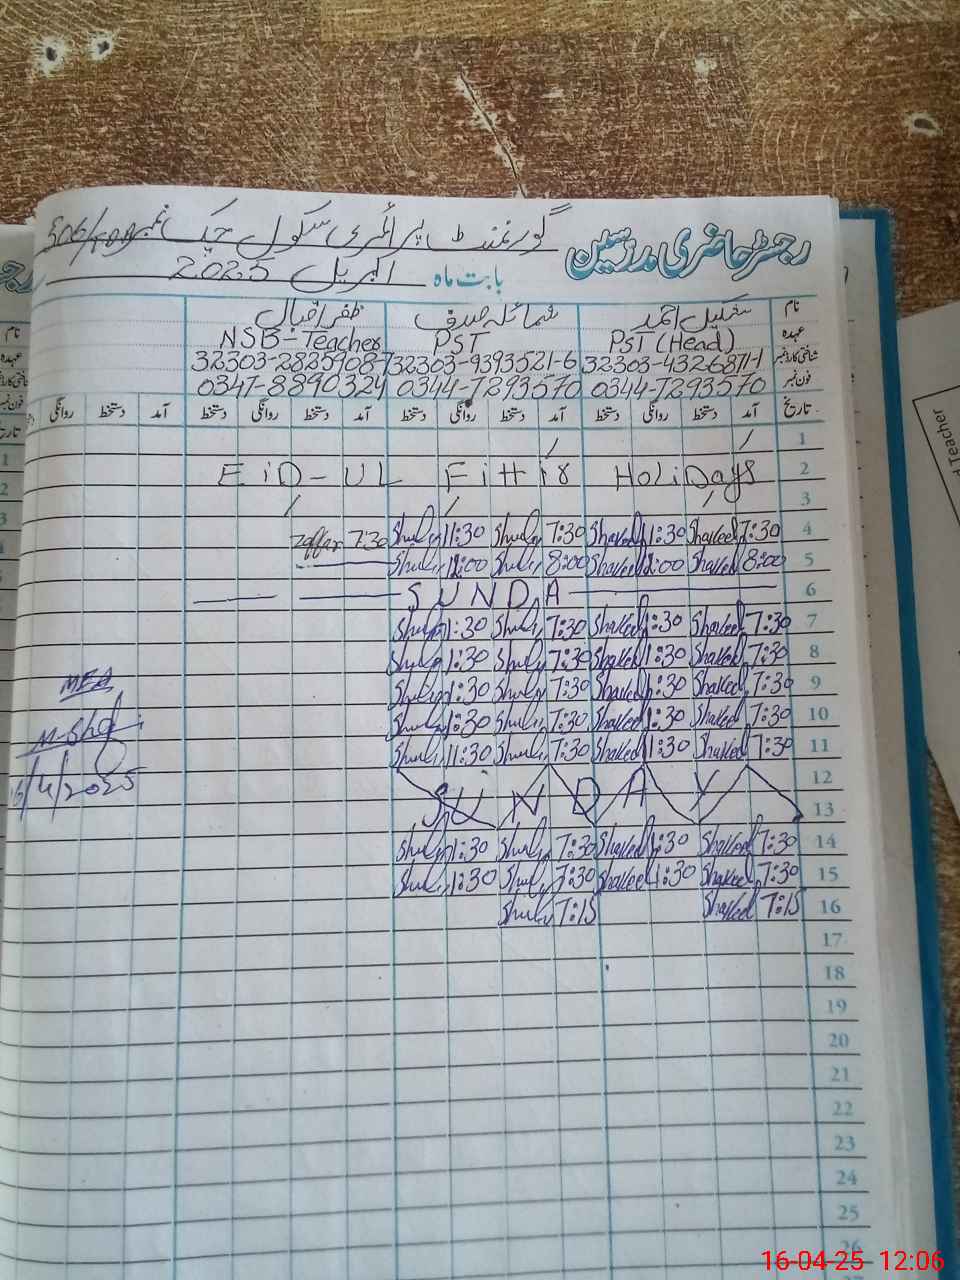 رجسٹر حاضری مدرسین گورنمنٹ پرائمری سکول چک نمبر
بابت ماہ اپریل 2025
نام شکیل احمد شمائلہ صدف ظفر اقبال
عہدہ PST (Head) PST NSB-Teacher
شناختی کارڈ نمبر 32303-4326871-1 32303-9393521-6 32303-2825908-7
فون نمبر 0344-7293570 0344-7293570 0347-8890324
تاریخ آمد دستخط روانگی دستخط آمد دستخط روانگی دستخط آمد دستخط روانگی دستخط آمد دستخط روانگی
1
2 EiD-UL FittiR HoliDays
3
4 7:30 Shakeel 11:30 Shakeel 7:30 11:30 7:30 Zaffar
5 8:00 Shakeel 12:00 Shakeel 8:00 12:00
6 SUNDA
7 7:30 Shakeel 1:30 Shakeel 7:30 1:30
8 7:30 Shakeel 1:30 Shakeel 7:30 1:30
9 7:30 Shakeel 1:30 Shakeel 7:30 1:30
10 7:30 Shakeel 1:30 Shakeel 7:30 1:30
11 7:30 Shakeel 11:30 Shakeel 7:30 11:30
12
13 SUNDAY
14 7:30 Shakeel 1:30 Shakeel 7:30 1:30
15 7:30 Shakeel 1:30 Shakeel 7:30 1:30
16 7:15 Shakeel 7:15
17
18
19
20
21
22
23
24
25
26
MEA
16/4/2025
Teacher
16-04-25 12:06